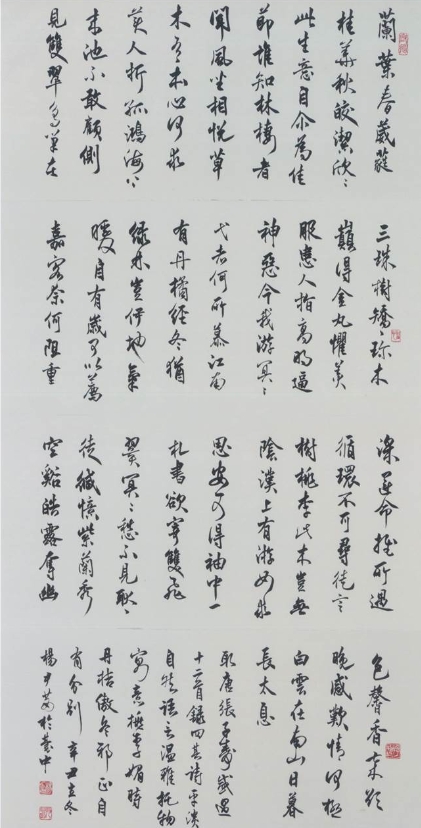 蘭葉春葳蕤
桂華秋皎潔欣々
此生意自尒為佳
節誰知林棲者
聞風坐相悅草
木有本心何求
美人折孤鴻海上
來池不敢顧側
見雙翠鳥巢在
三珠樹矯々珍木
巔得金丸懼美
服患人指高明逼
神惡今我游冥々
弋者何所慕江南
有丹橘經冬猶
綠林豈伊地氣
暖自有歲可以薦
嘉客奈何阻重
深運命惟所遇
循環不可尋徒言
樹桃李此木豈無
陰漢上有游女求
思安可得袖中一
札書欲寄雙飛
翼冥々愁不見耿々
徒緘憶紫蘭秀
空谿皓露奪幽
色馨香來歲
晚感歎情何極
白雲在南山日暮
長太息
取唐張子壽感遇
十二首錄四其詩平淡
自然語言溫雅托物
寄意李媚時
丹桔傲冬邪正自
有分別 辛丑立冬
楊於臺中